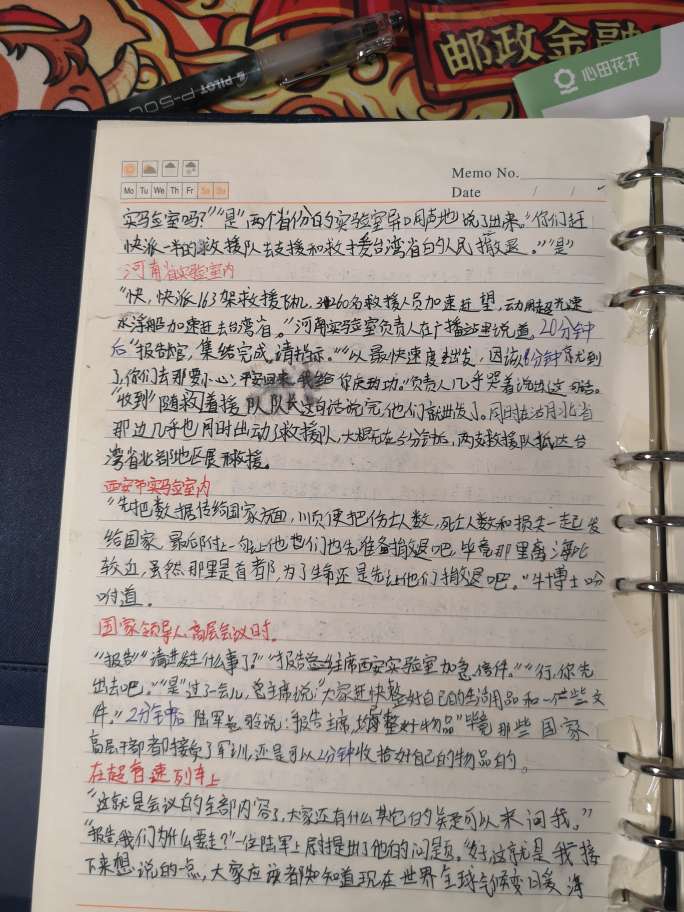 邮政金融
心田花开
PILOT P-500
Memo No.
Mo Tu We Th Fr Sa Su
Date / /
实马金室吗？""是"两个省份的实验室异口同声地说了出来。"你们赶
快派一半的救援队去支援和救援台湾省的人民撤退。""是"
河南省实验室内
"快，快派163架救援飞机，3260名救援人员加速赶望，动用超光速
水浮船加速进去台湾省。"河南实验室负责人在广播站里说道。20分钟
后"报告官，集结完成，请指示。""以最快速度出发，因该8分钟就到
了，你们去那要小心，平安回来，我给你庆功。"负责人几乎哭着说出这句话。
"收到"随救着援队队长这句话说完，他们就出发了。同时在湖北省
那边几乎也同时出动了救援队，大概在5分钟后，两支救援队抵达台
湾省北部地区展开救援。
西安市实马金室内
"先把数据传给国家方面，顺便把伤士人数，死亡人数和损失一起发
给国家，最后附上一句让他们也先准备撤退吧，毕竟那里离海比
较近，虽然那里是首都，为了生命还是先让他们撤退吧。"牛博士吩
咐道。
国家领导人高层会议时
"报告""请进发生什么事了？""报告总主席西安实验室加急信件。""行，你先
出去吧。""是"过了一会儿，总主席说："大家赶快整好自己的生活用品和一些文
件。"2分钟后 陆军总 说："报告主席，整好物品"毕竟那些国家
高层干部都接受了军训，还是可以2分钟收拾好自己的物品的。
在超音速列车上
"这就是会议的全部内容了，大家还有什么其它的疑问可以来问我。"
"报告，我们为什么要走？"一位陆军上尉提出了他的问题。"好，这就是我接
下来想说的一点，大家应该都知道现在世界全球气候变暖，海